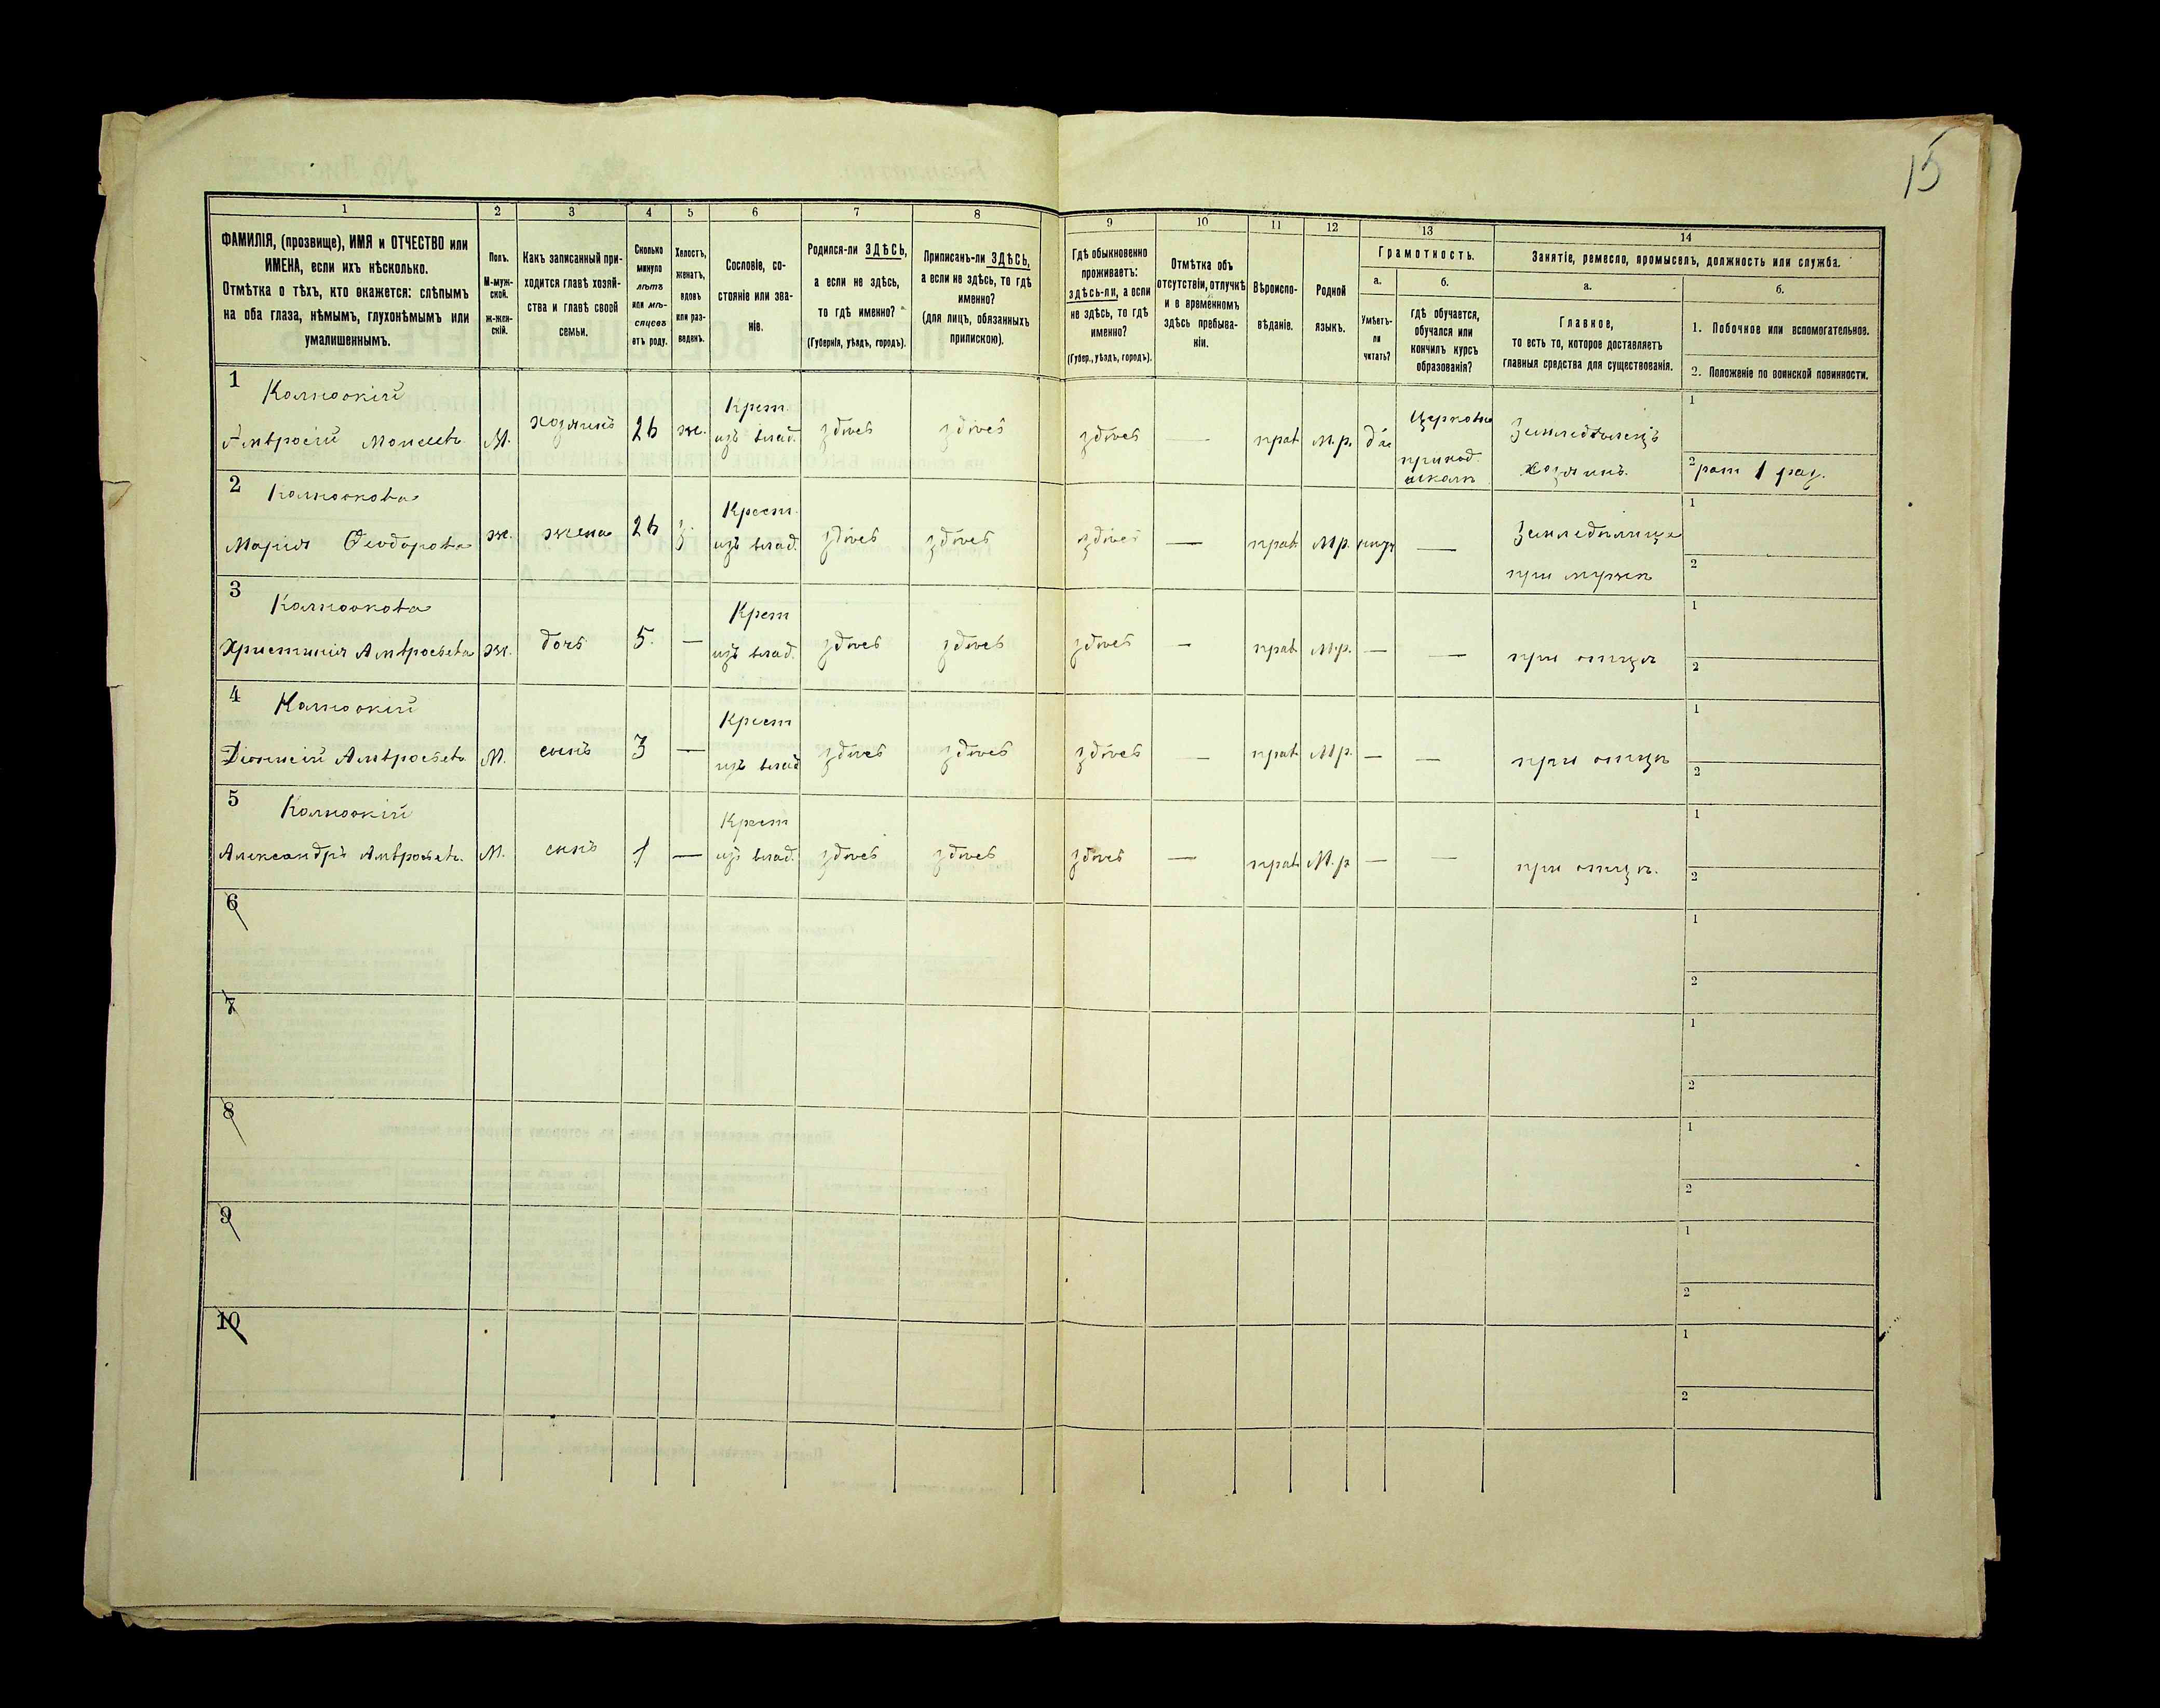 15
1 2 3 4 5 6 7 8 9 10 11 12 13 14
ФАМИЛІЯ, (прозвище), ИМЯ и ОТЧЕСТВО или
ИМЕНА, если ихъ нѣсколько.
Отмѣтка о тѣхъ, кто окажется: слѣпымъ
на оба глаза, нѣмымъ, глухонѣмымъ или
умалишеннымъ.
Полъ.
М-муж-
ской.
ж-жен-
скій.
Какъ записанный при-
ходится главѣ хозяй-
ства и главѣ своей
семьи.
Сколько
минуло
лѣтъ
или мѣ-
сяцевъ
отъ роду.
Холостъ,
женатъ,
вдовъ
или раз-
веденъ.
Сословіе, со-
стояніе или зва-
ніе.
Родился-ли ЗДѢСЬ,
а если не здѣсь,
то гдѣ именно?
(Губернія, уѣздъ, городъ).
Приписанъ-ли ЗДѢСЬ,
а если не здѣсь, то гдѣ
именно?
(для лицъ, обязанныхъ
припискою).
Гдѣ обыкновенно
проживаетъ:
здѣсь-ли, а если
не здѣсь, то гдѣ
именно?
(Губер., уѣздъ, городъ).
Отмѣтка объ
отсутствіи, отлучкѣ
и о временномъ
здѣсь пребыва-
ніи.
Вѣроиспо-
вѣданіе.
Родной
языкъ.
Грамотность.
а.
Умѣетъ-
ли
читать?
б.
гдѣ обучается,
обучался или
кончилъ курсъ
образованія?
Занятіе, ремесло, промыселъ, должность или служба.
а.
Главное,
то есть то, которое доставляетъ
главныя средства для существованія.
б.
1. Побочное или вспомогательное.
2. Положеніе по воинской повинности.
1
Амвросій Моисеевъ М. хозяинъ 26 ж. Крест. изъ влад. здѣсь здѣсь здѣсь — прав М.р. да Церковно приход. школѣ Земледѣлецъ хозяинъ. 1
2 рат 1 раз.
2
Марія Феодорова ж. жена 26 з. Крест. изъ влад. здѣсь здѣсь здѣсь — прав М.р. — Земледѣлица при мужѣ 1
2
3
Христинія Амвросьева ж. дочь 5. — Крест изъ влад. здѣсь здѣсь здѣсь — прав М.р. — — при отцѣ 1
2
4
Діонисій Амвросьевъ М. сынъ 3 — Крест изъ влад здѣсь здѣсь здѣсь — прав М.р. — — при отцѣ 1
2
5
Александръ Амвросьевъ. М. сынъ 1 — Крест изъ влад. здѣсь здѣсь здѣсь — прав М.р — — при отцѣ. 1
2
6 1
2
7 1
2
8 1
2
9 1
2
10 1
2